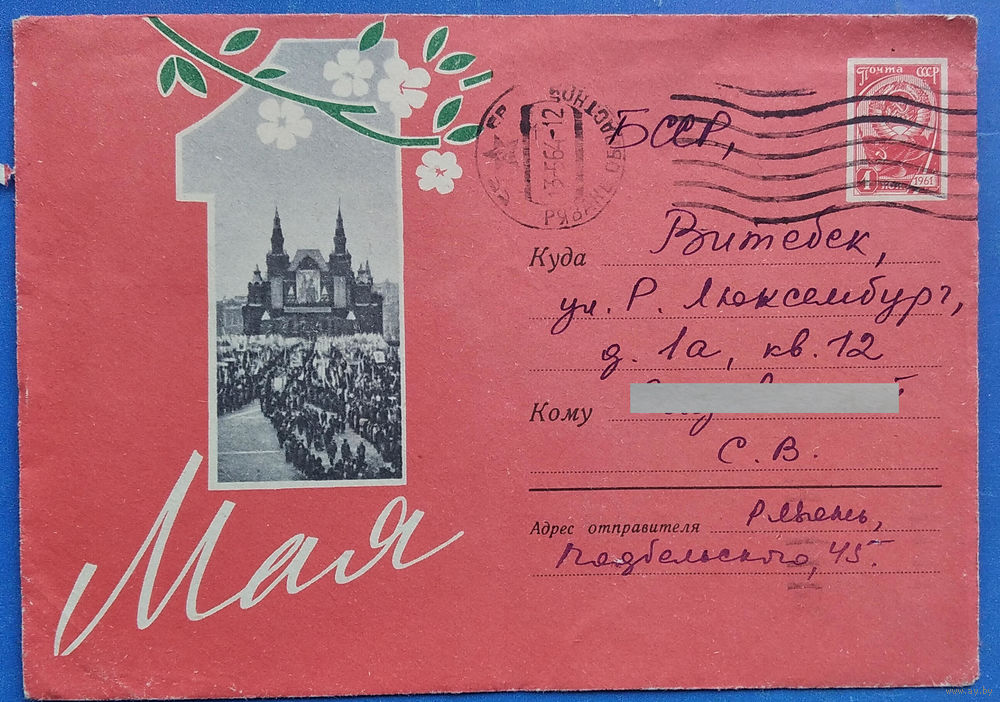 1
Мая
Почта СССР
4 коп 1961
3-5 64-12
РЯЗАНЬ ОБЛАСТНОЕ
БССР,
Куда Витебск,
ул. Р. Люксембург,
д. 1а, кв. 12
Кому
С. В.
Адрес отправителя Рязань,
Подбельского, 45.
www.ay.by